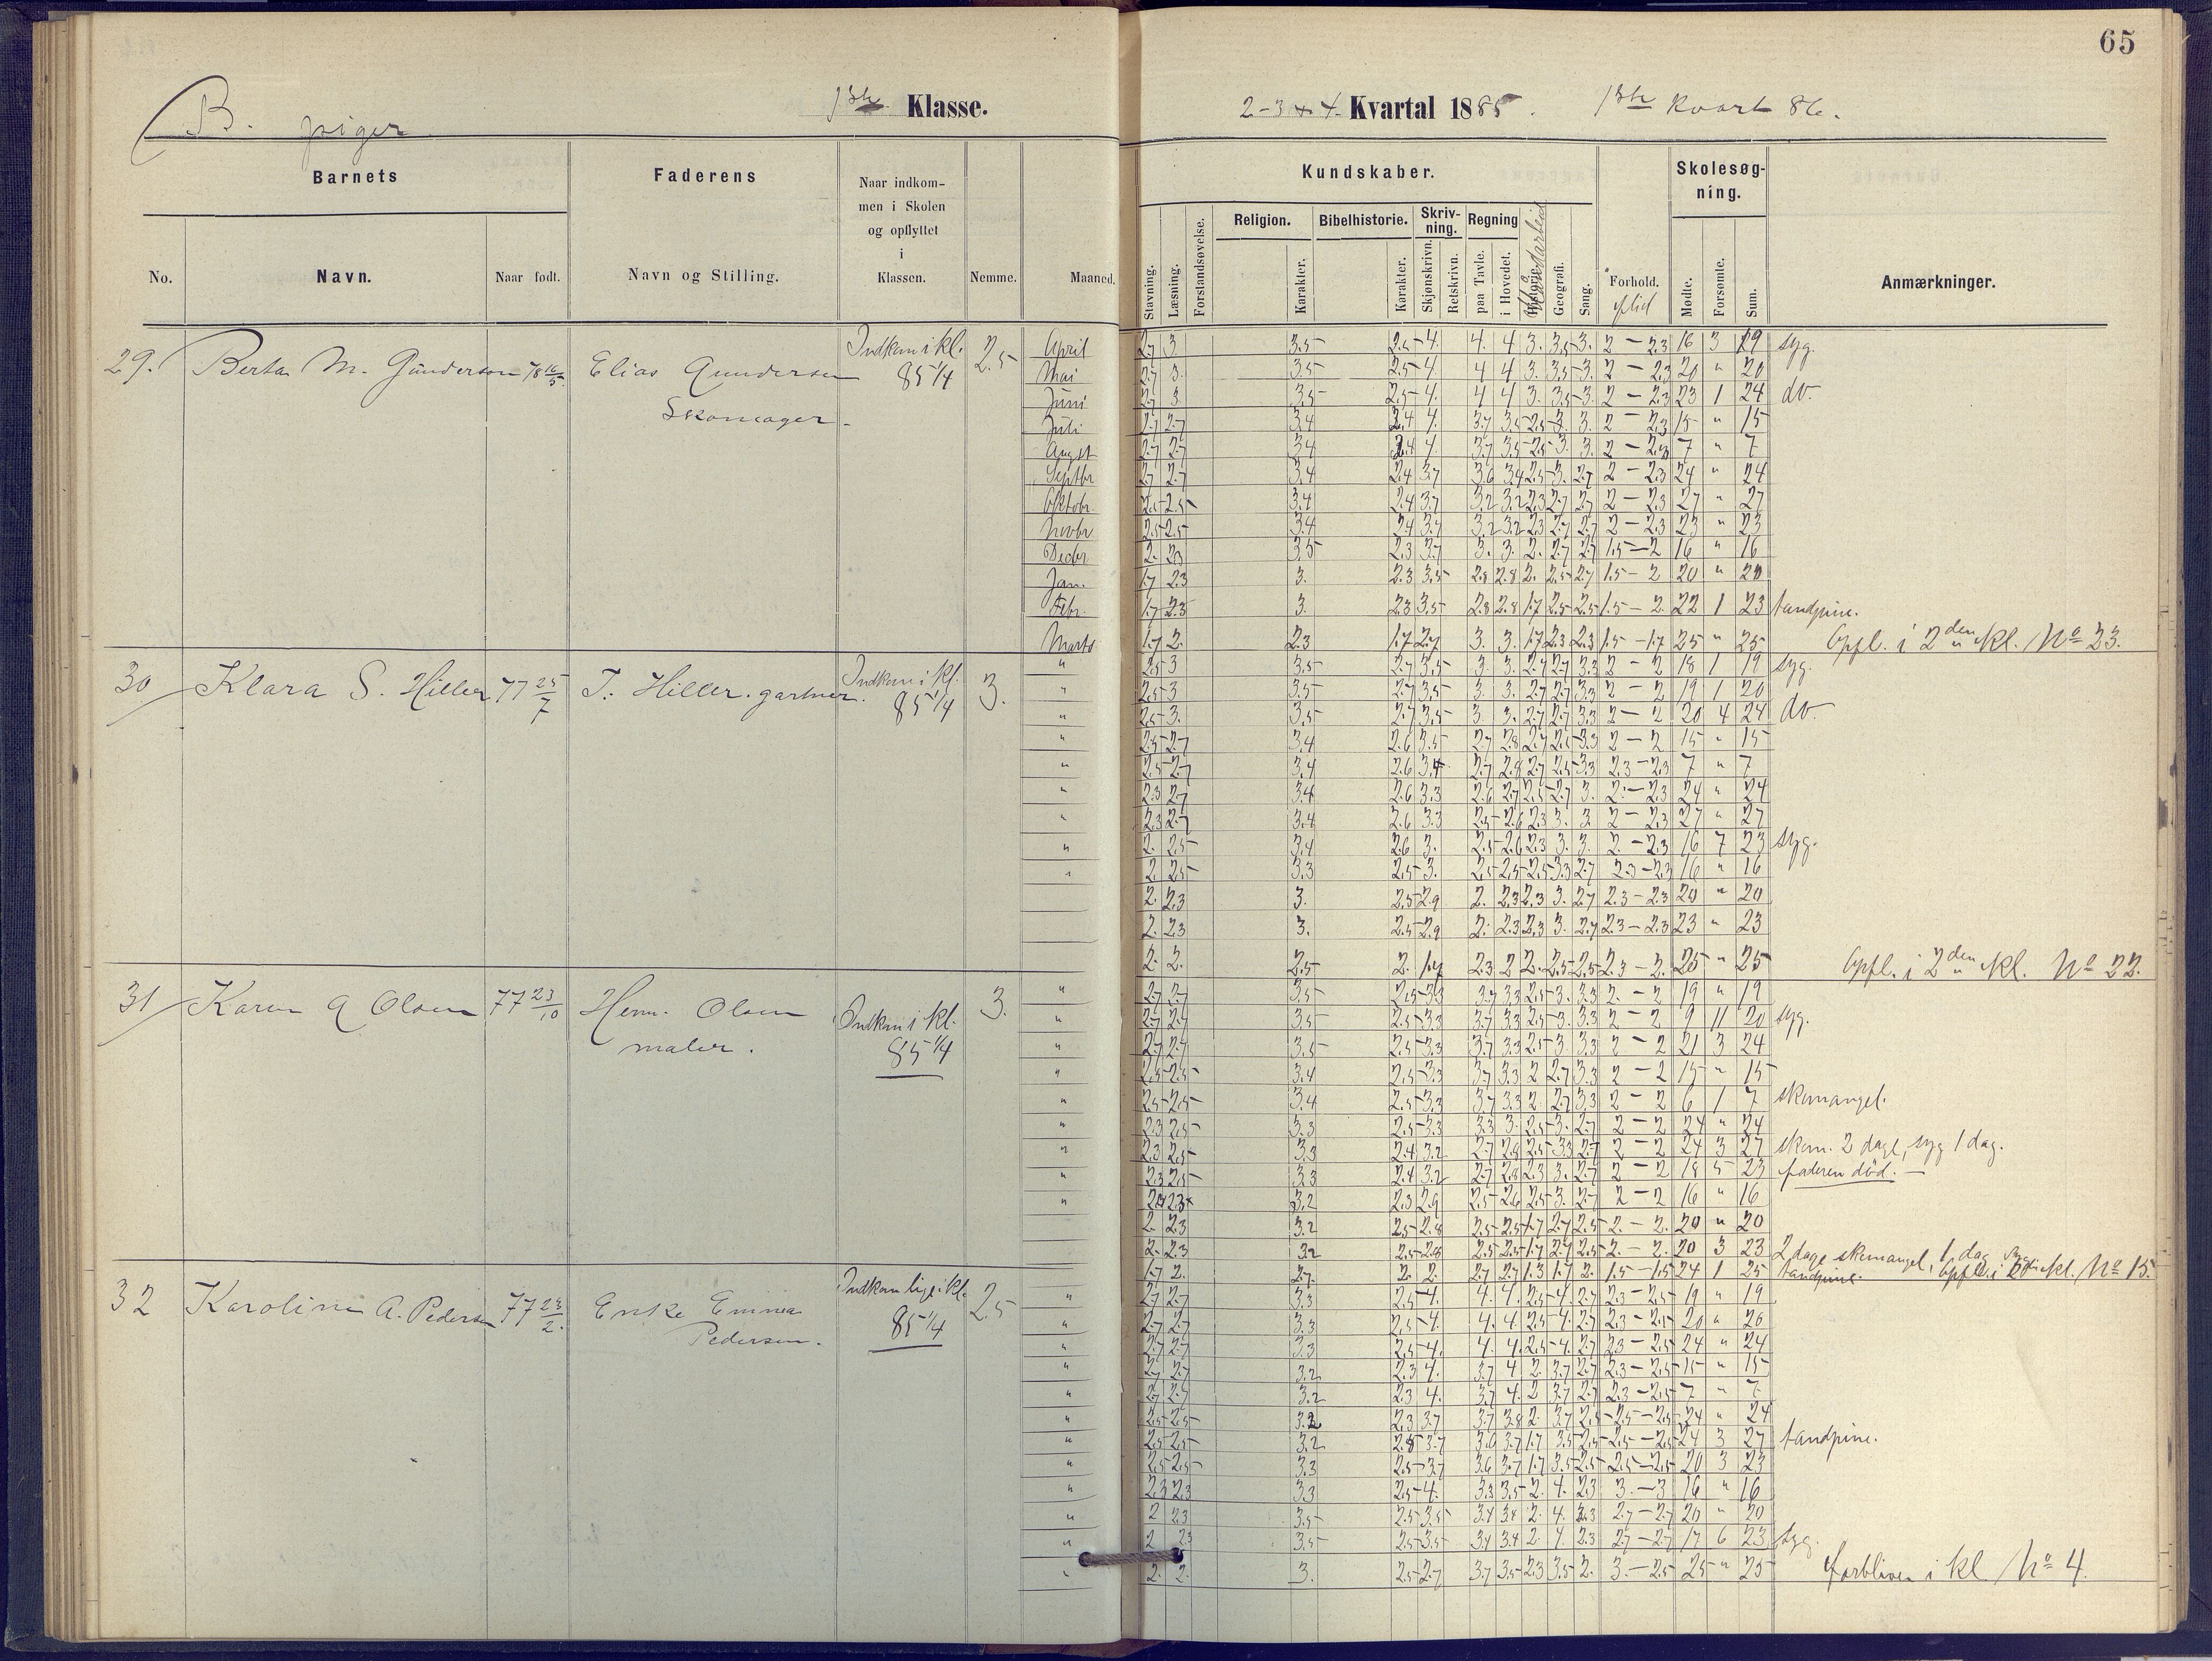 65
B. piger
1ste Klasse.
2-3 + 4. Kvartal 1885. 1ste Kvart 86.
Barnets
Faderens
Naar indkommen i Skolen og opflyttet i Klassen.
Kundskaber.
Skolesøgning.
No.
Navn.
Naar født.
Navn og Stilling.
Nemme.
Maaned.
Stavning.
Læsning.
Forstandsøvelse.
Religion.
Karakter.
Bibelhistorie.
Karakter.
Skrivning.
Skjønskrivn.
Retskrivn.
Regning
paa Tavle.
i Hovedet.
Haandarbeid
Geografi.
Sang.
Forhold.
flid
Mødte.
Forsømte.
Sum.
Anmærkninger.
29. Berta M. Gunderson 78 16/5 Elias Gundersen Skomager. Indkom i kl. 85 1/4 2.5
April 2.7 3 3.5 2.5 4. 4. 4 3. 3.5 3. 2 - 2.3 16 3 19 syg.
Mai 2.7 3. 3.5 2.5 4 4 4 3. 3.5 3. 2 - 2.3 20 " 20
Juni 2.7 3. 3.5 2.5 4. 4 4 3. 3.5 3. 2 - 2.3 23 1 24 do.
Juli 2.7 2.7 3.4 2.4 4. 3.7 3.5 2.5 3. 3. 2 - 2.3 15 " 15
Augst 2.7 2.7 3.4 2.4 4 3.7 3.5 2.5 3. 3. 2 - 2.3 7 " 7
Septbr 2.7 2.7 3.4 2.4 3.7 3.6 3.4 2.5 3. 2.7 2 - 2.3 24 " 24
Oktobr. 2.5 2.5 3.4 2.4 3.7 3.2 3.2 2.3 2.7 2.7 2 - 2.3 27 " 27
Novbr 2.5 2.5 3.4 2.4 3.7 3.2 3.2 2.3 2.7 2.7 2 - 2.3 23 " 23
Decbr 2. 2.3 3.5 2.3 3.7 3. 3. 2. 2.7 2.7 1.5 - 2 16 " 16
Jan. 1.7 2.3 3. 2.3 3.5 2.8 2.8 2. 2.5 2.7 1.5 - 2 20 " 20
Febr. 1.7 2.3 3. 2.3 3.5 2.8 2.8 1.7 2.5 2.5 1.5 - 2. 22 1 23 tandpine.
Marts 1.7 2. 2.3 1.7 2.7 3. 3. 1.7 2.3 2.3 1.5 - 1.7 25 " 25 Opfl. i 2den kl. No 23.
30 Klara S. Hiller 77 25/7 T. Hiller. gartner. Indkom i kl. 85 1/4 3.
" 2.5 3 3.5 2.7 3.5 3. 3. 2.7 2.7 3.3 2 - 2 18 1 19 syg.
" 2.5 3 3.5 2.7 3.5 3. 3. 2.7 2.7 3.3 2 - 2 19 1 20
" 2.5 3. 3.5 2.7 3.5 3. 3. 2.7 2.7 3.3 2 - 2 20 4 24 do.
" 2.5 2.7 3.4 2.6 3.5 2.7 2.8 2.7 2.5 3.3 2 - 2 15 " 15
" 2.5 2.7 3.4 2.6 3.4 2.7 2.8 2.7 2.5 3.3 2.3 - 2.3 7 " 7
" 2.3 2.7 3.4 2.6 3.3 2.6 2.7 2.5 2.7 3. 2. - 2.3 24 " 24
" 2.3 2.7 3.4 2.6 3.3 2.5 2.6 2.3 3. 3. 2 - 2.3 27 " 27
" 2. 2.5 3.4 2.6 3. 2.5 2.6 2.3 3. 3. 2. - 2.3 16 7 23 syg.
" 2. 2.5 3.3 2.5 3. 2.5 2.5 2.5 3.3 2.7 2.3 - 2.3 16 " 16
2. 2.3 3. 2.5 2.9 2. 2.3 2.3 3. 2.7 2.3 - 2.3 20 " 20
2. 2.3 3. 2.5 2.9 2. 2.3 2.3 3. 2.7 2.3 - 2.3 23 " 23
2. 2. 2.5 2. 1.7 2.3 2 2. 2.5 2.5 2.3 - 2. 25 " 25 Opfl. i 2den kl. No 22.
31 Karen A Olsen 77 23/10 Herm. Olsen maler. Indkom i kl. 85 1/4 3.
" 2.7 2.7 3.5 2.5 3.3 3.7 3.3 2.5 3. 3.3 2. - 2 19 " 19
" 2.7 2.7 3.5 2.5 3.3 3.7 3.3 2.5 3. 3.3 2 - 2 9 11 20 syg.
" 2.7 2.7 3.5 2.5 3.3 3.7 3.3 2.5 3. 3.3 2 - 2 21 3 24
" 2.5 2.5 3.4 2.5 3.3 3.7 3.3 2 2.7 3.3 2 - 2 15 " 15
" 2.5 2.5 3.4 2.5 3.3 3.7 3.3 2 2.7 3.3 2 - 2 6 1 7 skomangel.
" 2.3 2.5 3.3 2.5 3.3 3.3 3. 2.5 3. 2.7 2 - 2 24 " 24
" 2.3 2.5 3.3 2.4 3.2 2.7 2.8 2.5 3.3 2.7 2 - 2 24 3 27 skom. 2 dage, syg 1 dag.
" 2.3 2.5 3.3 2.4 3.2 2.7 2.8 2.3 3. 2.7 2 - 2 18 5 23 faderen død.
" 2.3 3.2 2.3 2.9 2.5 2.6 2.5 3. 2.7 2 - 2 16 " 16
2. 2.3 3.2 2.5 2.8 2.5 2.5 1.7 2.7 2.5 2. - 2. 20 " 20
2. 2.3 3.2 2.5 2.8 2.5 2.5 1.7 2.7 2.5 2. - 2. 20 3 23 2 dage skomangel, 1 dag syg
1.7 2. 2.7 2. 2. 2.7 2.7 1.3 1.7 2. 1.5 - 1.5 24 1 25 tandpine. Opfl. i 2den kl. No 15.
32 Karoline A. Pedersen 77 23/2. Enke Emma Pedersen. Indkom lige i kl. 85 1/4 2.5
" 2.7 2.7 3.3 2.5 4. 4. 4. 2.5 4. 2.7 2.3 - 2.5 19 " 19
" 2.7 2.7 3.3 2.5 4 4. 4 2.5 4. 2.7 2.3 - 2.5 20 " 20
" 2.7 2.7 3.3 2.5 4. 4. 4. 2.5 4. 2.7 2.3 - 2.5 24 " 24
" 2.7 2.7 3.2 2.3 4. 3.7 4 2. 3.7 2.7 2.3 - 2.5 15 " 15
" 2.7 2.7 3.2 2.3 4. 3.7 4. 2 3.7 2.7 2.3 - 2.5 7 " 7
" 2.5 2.5 3.2 2.3 3.7 3.7 3.8 2. 3.7 2.5 2.5 - 2.5 24 " 24
" 2.5 2.5 3.2 2.5 3.7 3.6 3.7 1.7 3.5 2.5 2.5 - 2.5 24 3 27 tandpine.
" 2.5 2.5 3.3 2.5 3.7 3.6 3.7 1.7 3.5 2.5 2.5 - 2.5 20 3 23
" 2.3 2.3 3.3 2.5 4. 3.3 3.5 2. 4. 2.3 3. - 3 16 " 16
" 2 2.3 3.5 2.5 3.5 3.4 3.4 2. 4. 2.3 2.7 - 2.7 20 " 20
" 2 2.3 3.5 2.5 3.5 3.4 3.4 2. 4. 2.3 2.7 - 2.7 17 6 23 syg.
" 2. 2. 3. 2.5 2.7 3.7 3.5 2.3 3.5 2. 3. - 2.5 25 " 25 forbliver i kl No 4.